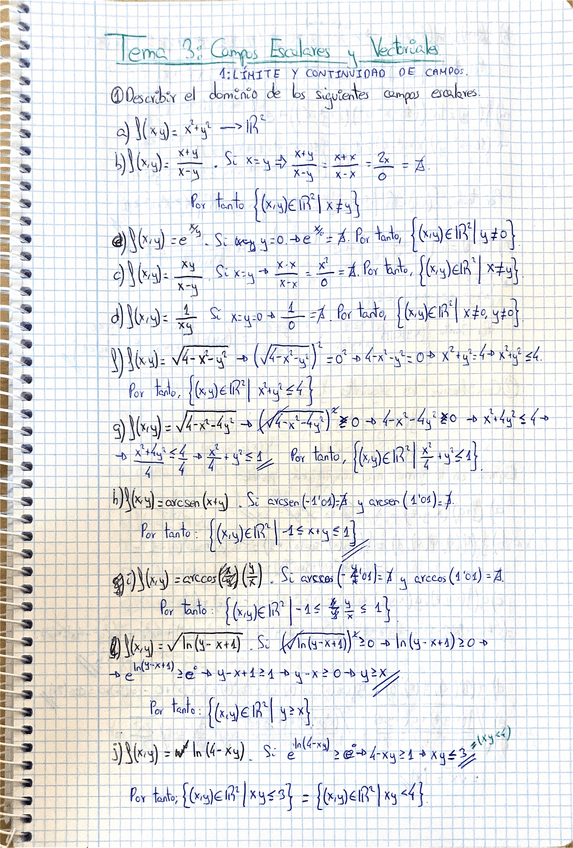 Tema 3: Campos Escalares y Vectoriales
1: LÍMITE Y CONTINUIDAD DE CAMPOS.
① Describir el dominio de los siguientes campos escalares.
a) f(x,y) = x²+y² → ℝ²
b) f(x,y) = (x+y)/(x-y). Si x=y ⇒ (x+y)/(x-y) = (x+x)/(x-x) = 2x/0 = ∄.
Por tanto {(x,y)∈ℝ² | x≠y}
e) f(x,y) = e^(x/y). Si y=0 → e^(x/0) = ∄. Por tanto, {(x,y)∈ℝ² | y≠0}.
c) f(x,y) = xy/(x-y). Si x=y → (x·x)/(x-x) = x²/0 = ∄. Por tanto, {(x,y)∈ℝ² | x≠y}.
d) f(x,y) = 1/(xy) Si x=y=0 → 1/0 = ∄. Por tanto, {(x,y)∈ℝ² | x≠0, y≠0}.
f) f(x,y) = √(4-x²-y²) → (√(4-x²-y²))² = 0² → 4-x²-y² = 0 → x²+y² = 4 → x²+y² ≤ 4.
Por tanto, {(x,y)∈ℝ² | x²+y² ≤ 4}
g) f(x,y) = √(4-x²-4y²) → (√(4-x²-4y²))² ≥ 0 → 4-x²-4y² ≥ 0 → x²+4y² ≤ 4 →
→ (x²+4y²)/4 ≤ 4/4 → x²/4 + y² ≤ 1 // Por tanto, {(x,y)∈ℝ² | x²/4 + y² ≤ 1}.
h) f(x,y) = arcsen(x+y). Si arcsen(-1'01) = ∄ y arcsen(1'01) = ∄.
Por tanto: {(x,y)∈ℝ² | -1 ≤ x+y ≤ 1} //
i) f(x,y) = arccos(y/x). Si arccos(-1'01) = ∄ y arccos(1'01) = ∄.
Por tanto: {(x,y)∈ℝ² | -1 ≤ y/x ≤ 1}
f(x,y) = √(ln(y-x+1)). Si (√(ln(y-x+1)))² ≥ 0 → ln(y-x+1) ≥ 0 →
→ e^(ln(y-x+1)) ≥ e⁰ → y-x+1 ≥ 1 → y-x ≥ 0 → y ≥ x //
Por tanto: {(x,y)∈ℝ² | y ≥ x}
j) f(x,y) = ln(4-xy). Si e^(ln(4-xy)) ≥ e⁰ → 4-xy ≥ 1 → xy ≤ 3 // = (xy<4)
Por tanto, {(x,y)∈ℝ² | xy ≤ 3} = {(x,y)∈ℝ² | xy < 4}.